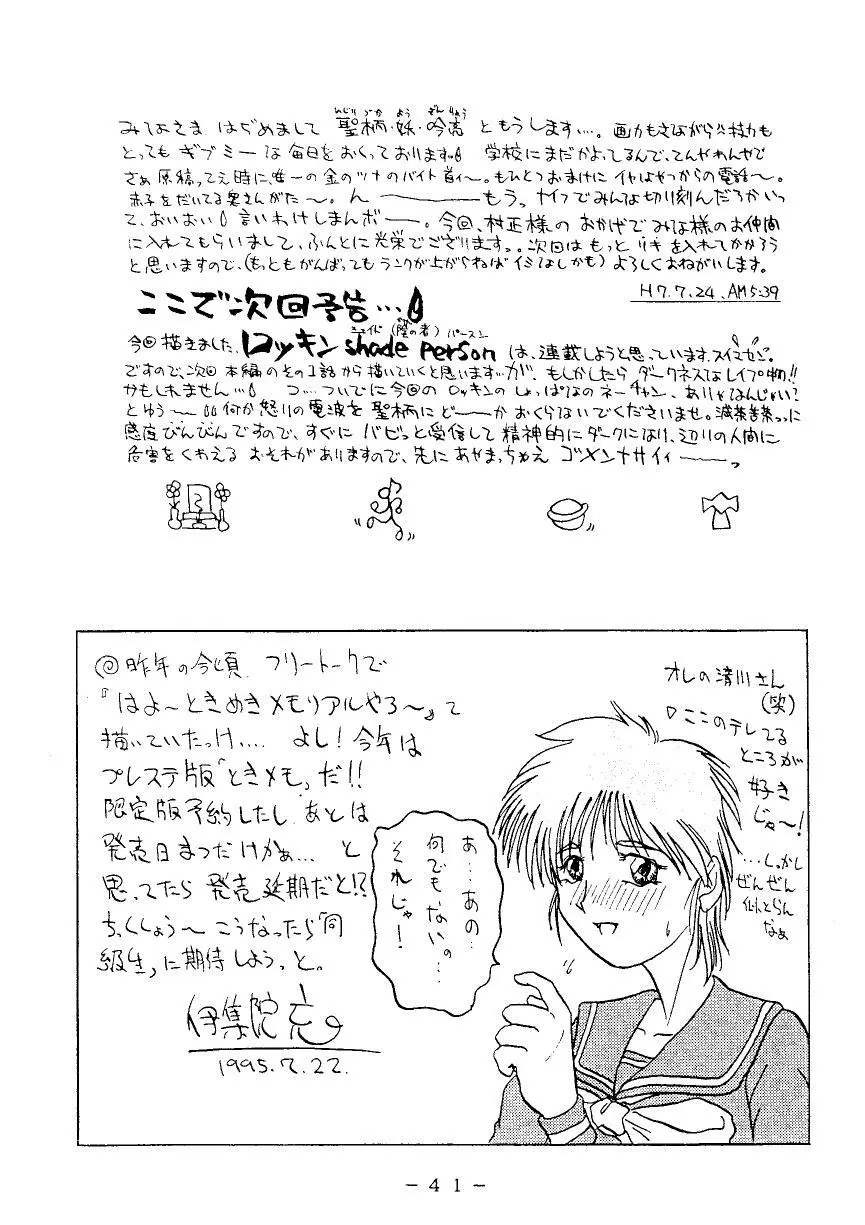 みなさま はぢめまして 聖柄・妖・吟亮 ともうします…。画力もさながら、技力も
とっても ギブミーな毎日をおくっております。 学校にまだかよってるんで、てんやわんやで
さぁ原稿ってえ時に、唯一の金のツナのバイト首ィ〜。もひとつおまけに イヤなやつからの電話〜。
赤子をだいてる奥さんがた〜。ん ――― もう。ナイフでみんな切り刻んだろかいっ
て、おいおい 言いわけしまんボ――。今回、村正様のおかげでみな様のお仲間
に入れてもらいまして、ふんとに光栄でございますっ。次回はもっと リキを入れてかかろう
と思いますので、(もっともがんばってもランクが上がらねばイミなしかも) よろしくおねがいします。
H7.7.24.AM5:39
ここで次回予告…
今回描きました、ロッキン shade person (陰の者) パースン は、連載しようと思っています。スイマセン。
ですので、次回 本編のその1話から描いていくと思います…が、もしかしたら ダークネスなレイプ物!!
かもしれません… つ…ついでに今回の ロッキンのしょっぱなのネーチャン、ありゃなんじゃい?
とゆう〜 何か怒りの電波を聖柄にど――かおくらないでくださいませ。滅茶苦茶っに
感度びんびんですので、すぐに バビッと受信して精神的にダークになり、辺りの人間に
危害をくわえる おそれがありますので、先にあやまっちゃえ ゴメンナサイィ――っ
◎昨年の今頃 フリートークで
『はよ〜ときめきメモリアルやろ〜』って
描いていたっけ…. よし!今年は
プレステ版「ときメモ」だ!!
限定版予約したし あとは
発売日まつだけかぁ… と
思ってたら 発売延期だと!?
ちっくしょう〜 こうなったら「同
級生」に期待しようっと。
伊集院 亮
1995.7.22.
あ…あの…
何でもないの…
それじゃ!
オレの清川さん
(笑)
ここのテレてる
ところが
好き
じゃ〜!
…しっかし
ぜんぜん
似とらん
なぁ
- 41 -